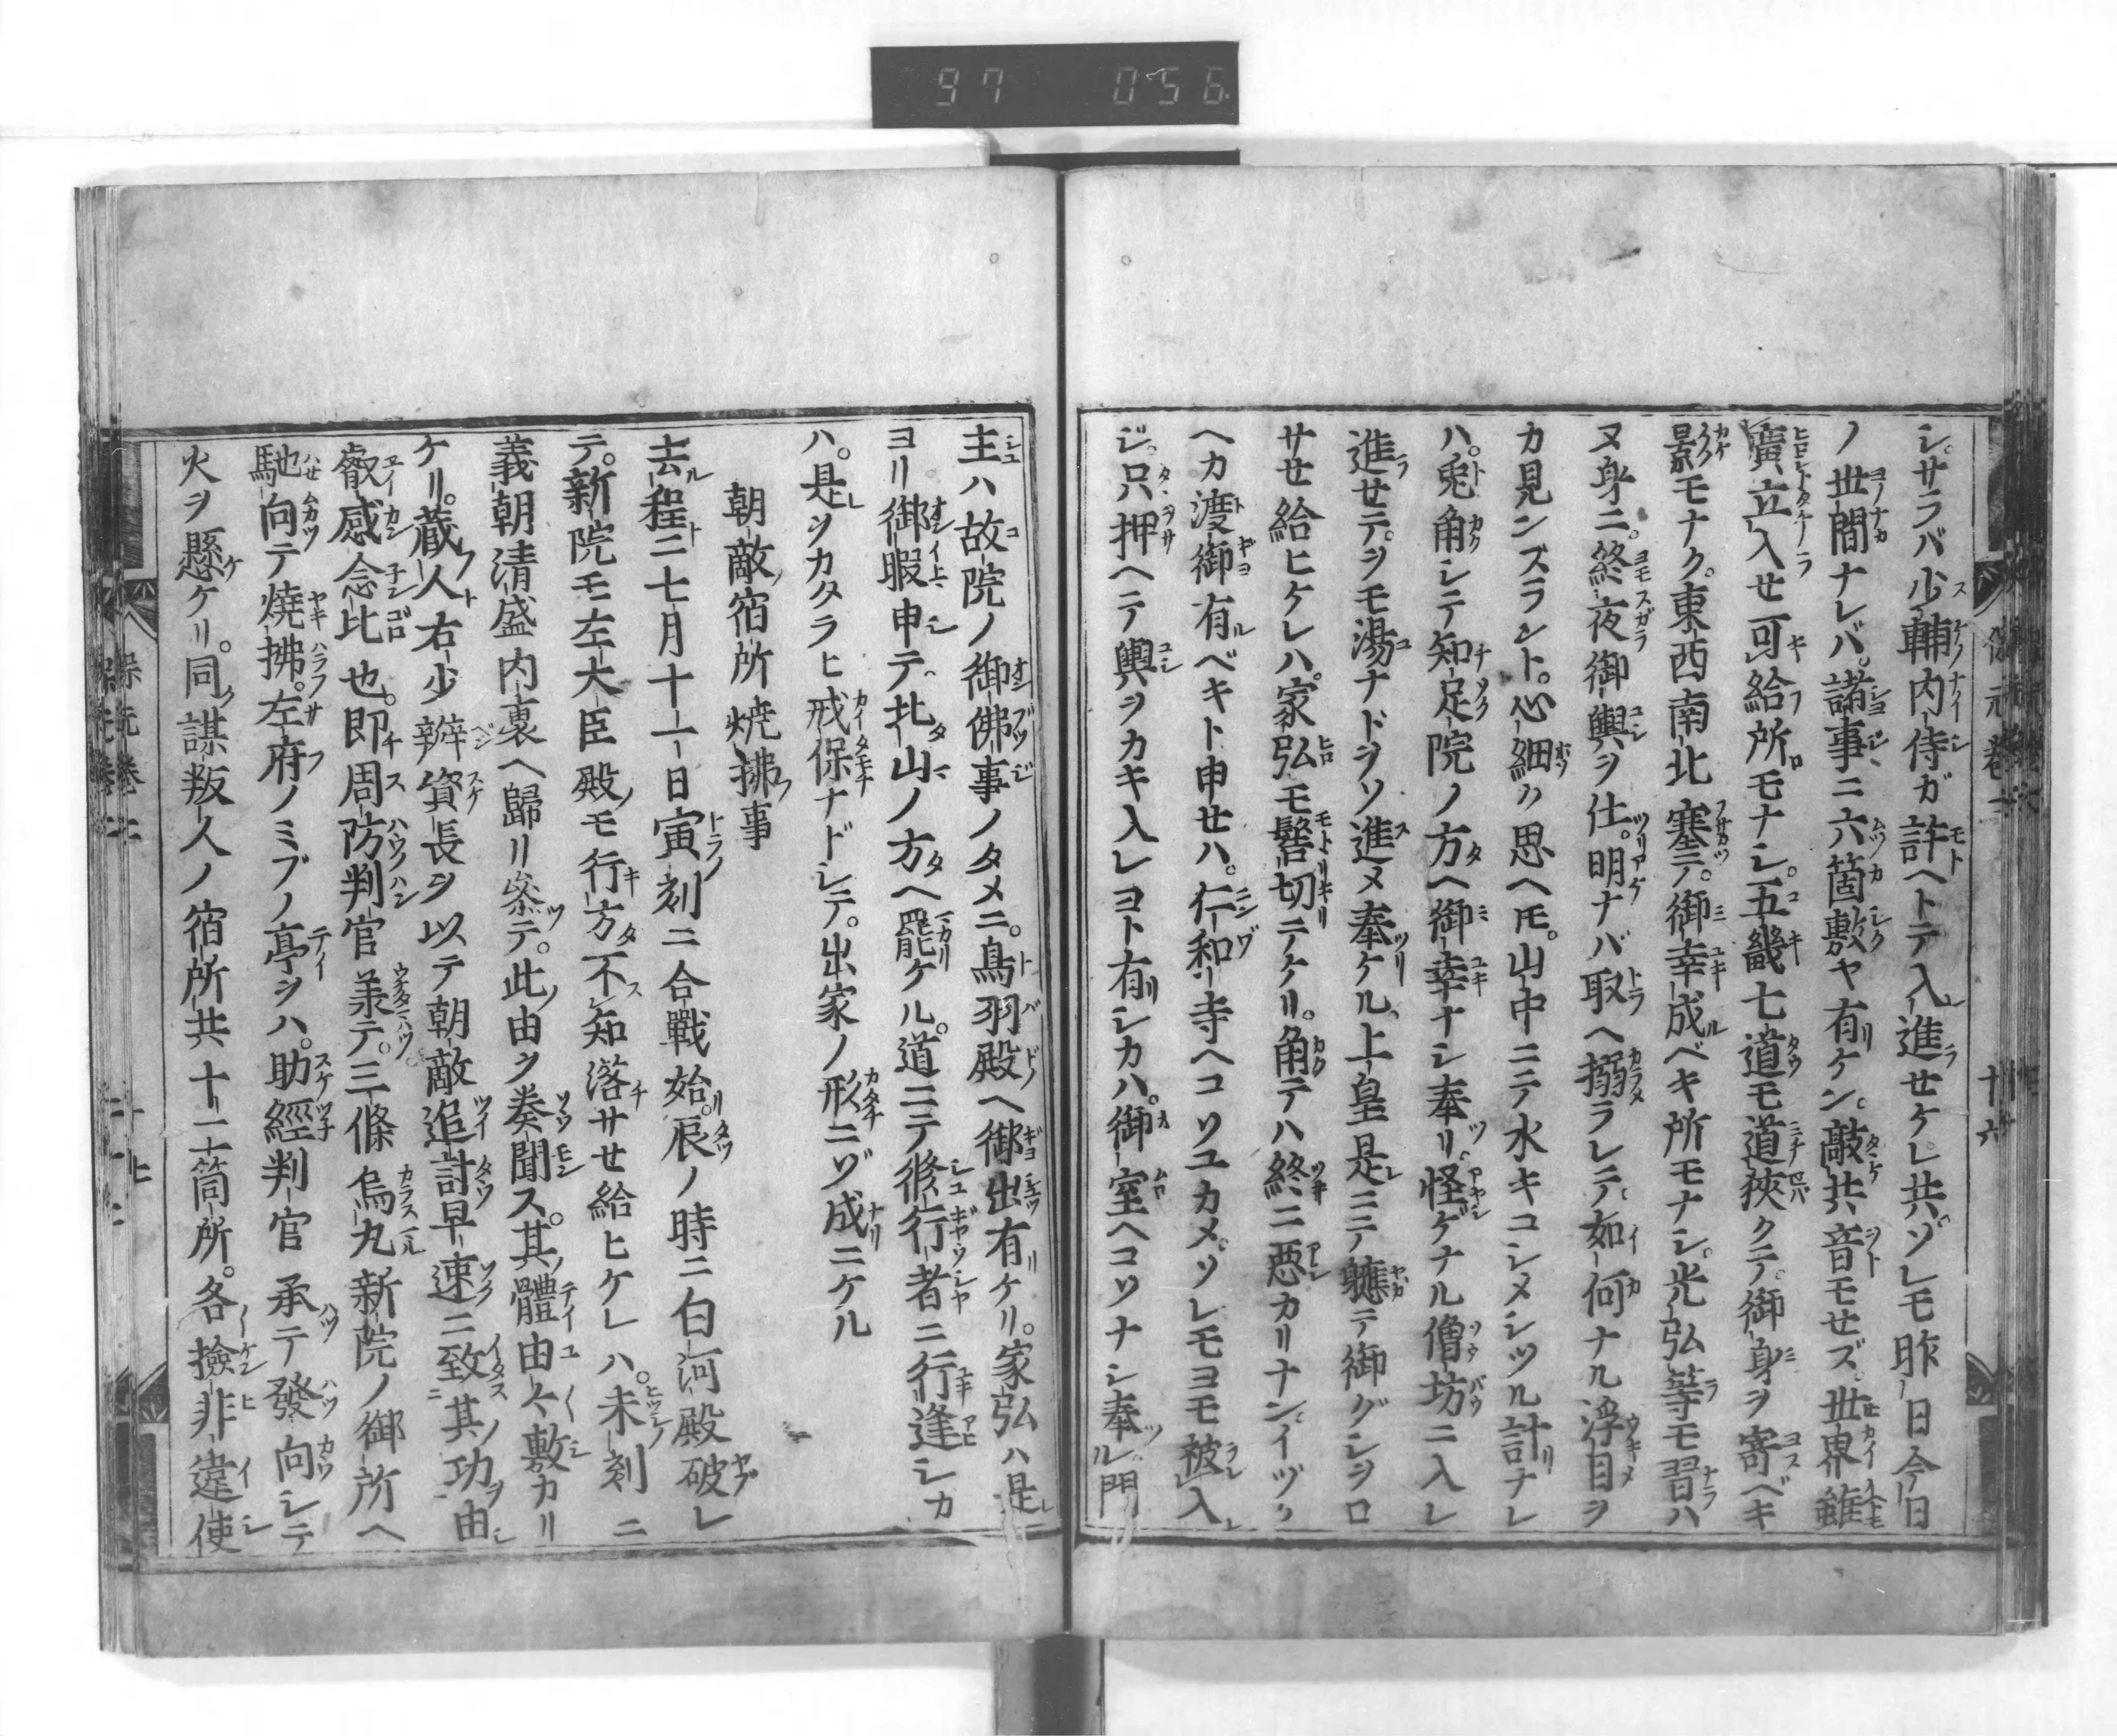 シ。サラバ少輔内侍ガ許ヘトテ入進セケレ共。ソレモ昨日今日
ノ世間ナレバ。諸事ニ六箇敷ヤ有ケン。敲共音モセズ。世界雖
廣立入セ可給所モナシ。五畿七道モ道狹クテ。御身ヲ寄ベキ
影モナク。東西南北塞テ。御幸成ベキ所モナシ。光弘等モ習ハ
ヌ身ニ。終夜御輿ヲ仕。明ナバ取ヘ搦ラレテ。如何ナル浮目ヲ
カ見ンズラント。心細ハ思ヘ𪜈。山中ニテ水キコシメシツル計ナレ
ハ。兎角シテ知足院ノ方ヘ御幸ナシ奉リ。怪ゲナル僧坊ニ入レ
進セテ。ヲモ湯ナドヲソ進メ奉ケル。上皇是ニテ軈テ御グシヲロ
サセ給ヒケレハ。家弘モ髻切テケリ。角テハ終ニ惡カリナン。イヅク
ヘカ渡御有ベキト申セハ。仁和寺ヘコソユカメ。ソレモヨモ被入
ジ。只押ヘテ輿ヲカキ入レヨト有シカハ。御室ヘコソナシ奉ル。門
主ハ故院ノ御佛事ノタメニ。鳥羽殿ヘ御出有ケリ。家弘ハ是
ヨリ御暇申テ。北山ノ方ヘ罷ケル。道ニテ修行者ニ行逢シカ
ハ。是ヲカタラヒ戒保ナドシテ。出家ノ形ニゾ成ニケル
朝敵宿所燒拂事
去程ニ七月十一日寅刻ニ合戰始。辰ノ時ニ白河殿破レ
テ。新院モ左大臣殿モ行方不知落サセ給ヒケレハ。未刻ニ
義朝清盛内裏ヘ歸リ參テ。此由ヲ奏聞ス。其體由々敷カリ
ケリ。藏人右少辨資長ヲ以テ朝敵追討早速ニ致其功由
叡感念比也。即周防判官承テ。三條烏丸新院ノ御所ヘ
馳向テ燒拂。左府ノミブノ亭ヲハ。助經判官承テ發向シテ
火ヲ懸ケリ。同謀叛人ノ宿所共十二箇所。各撿非違使
十六
97 056